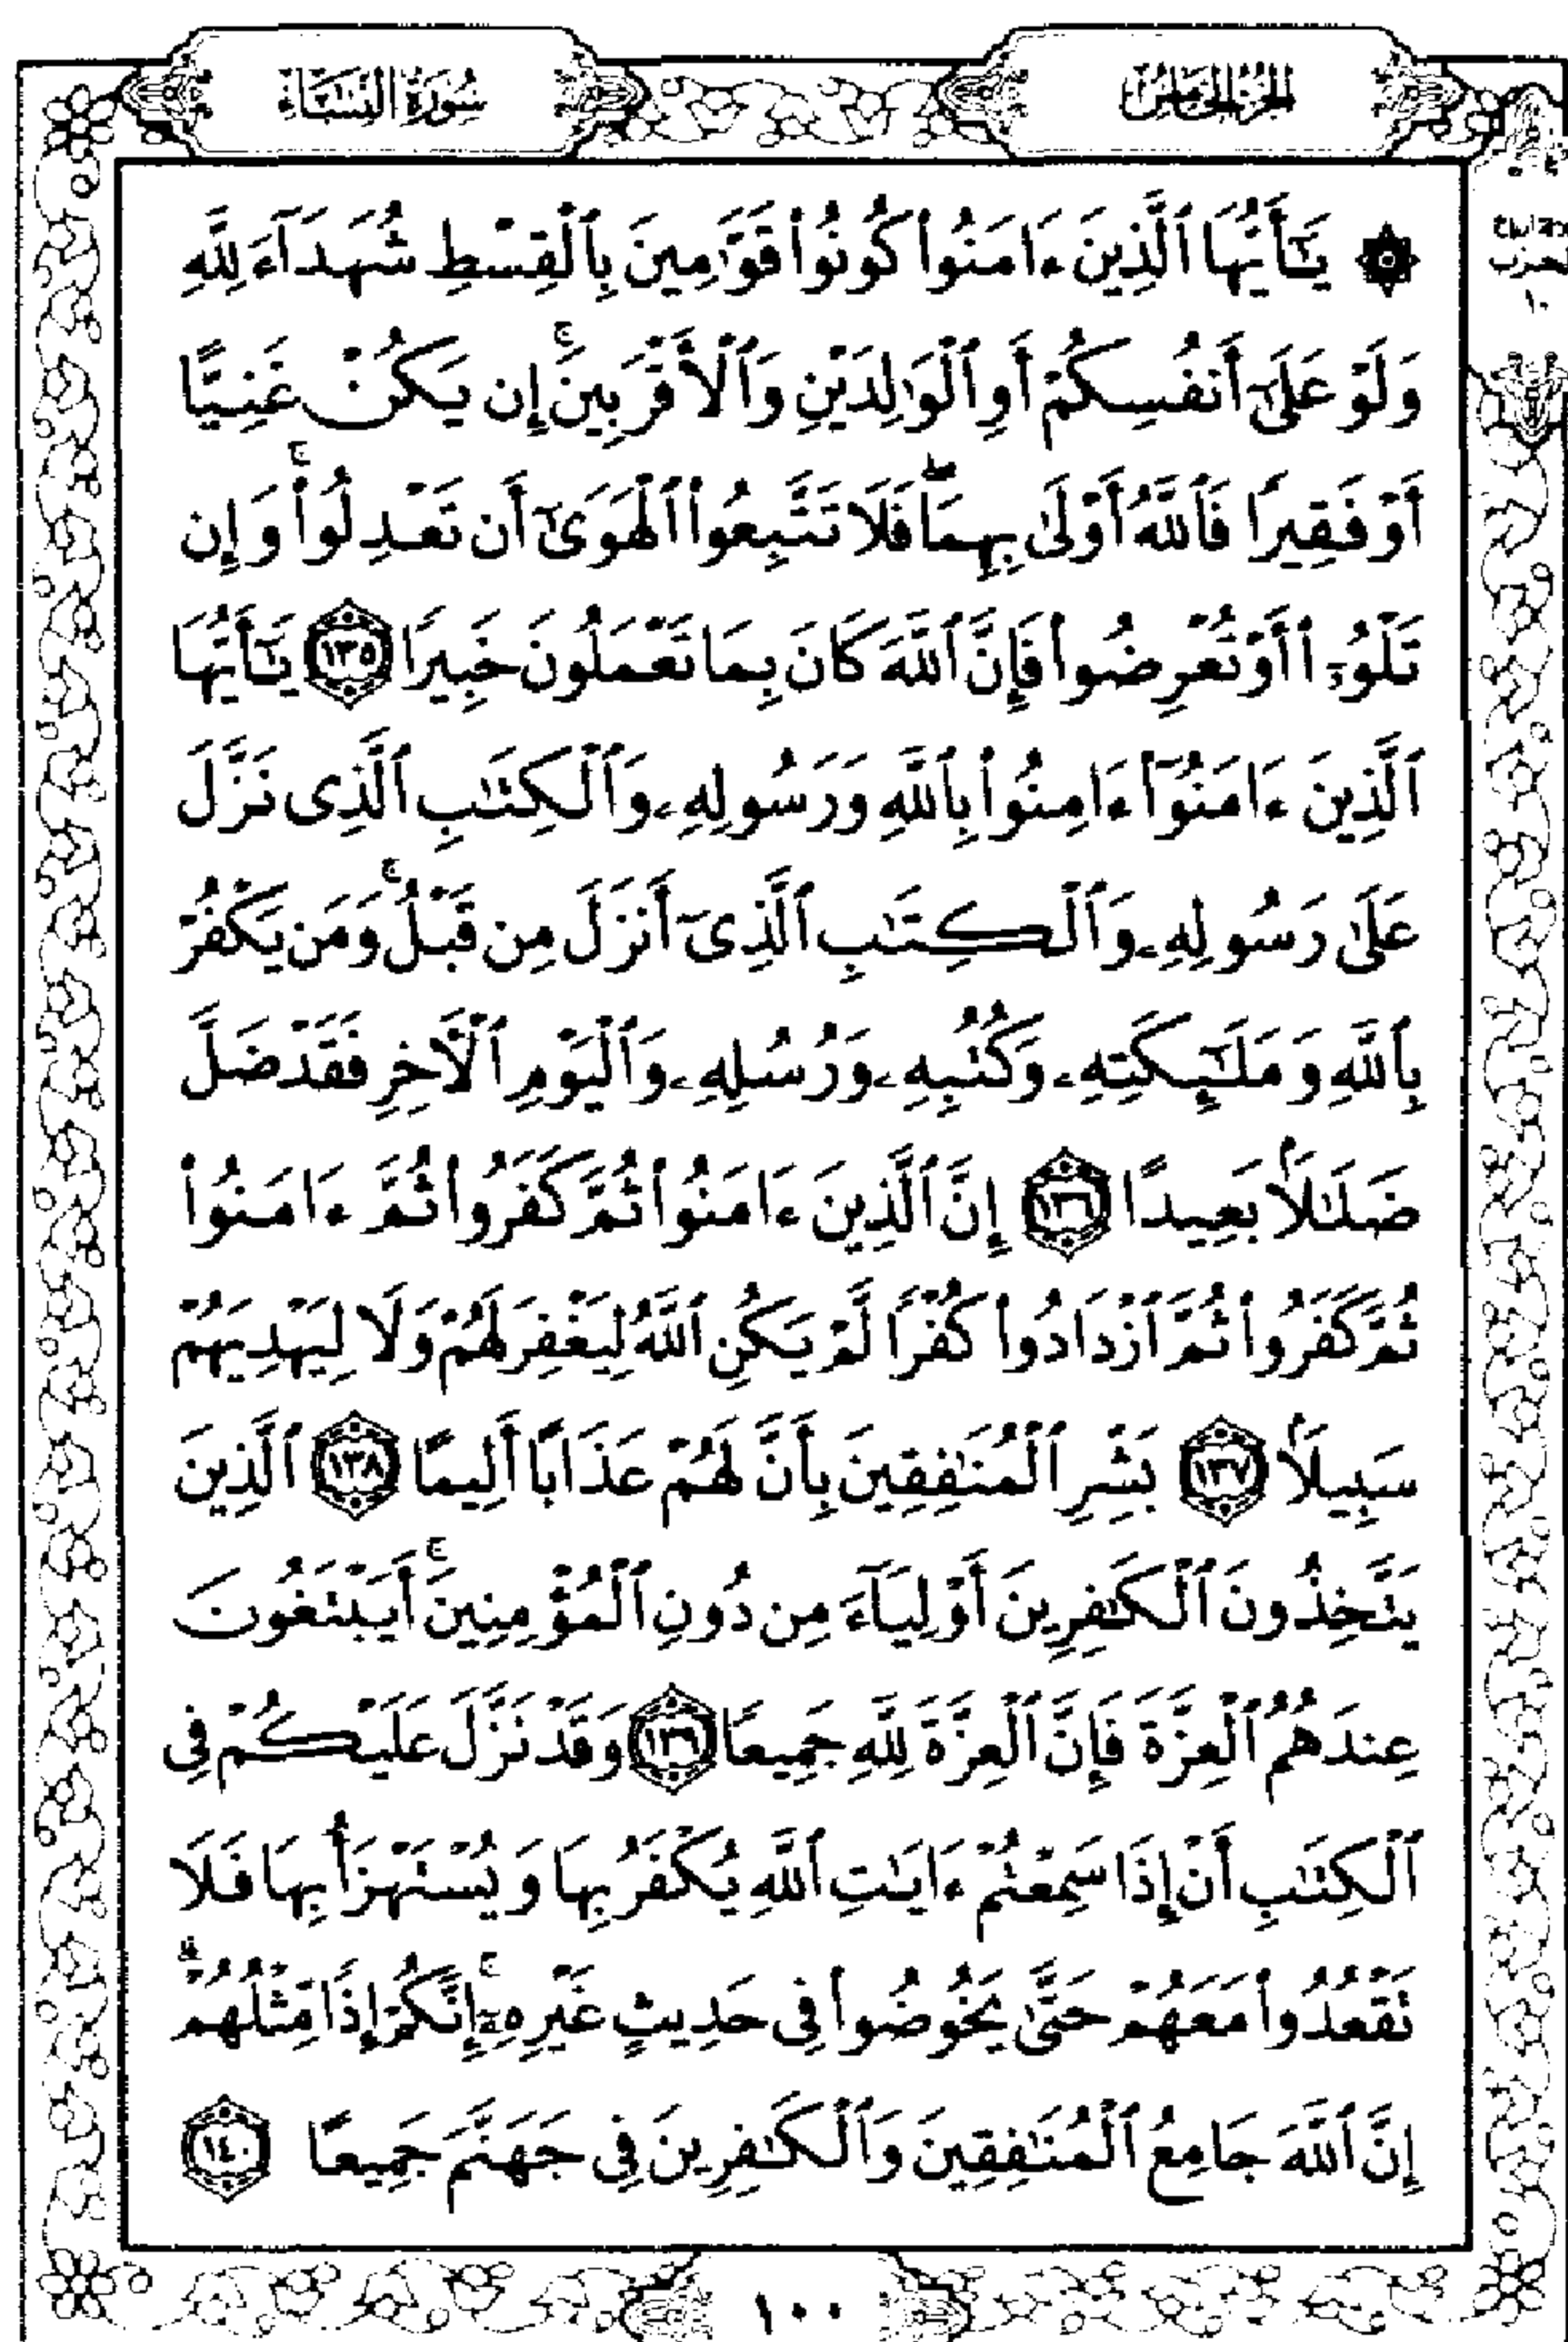 الجزء الخامس
سورة النساء
۞ يَٰٓأَيُّهَا ٱلَّذِينَ ءَامَنُوا۟ كُونُوا۟ قَوَّٰمِينَ بِٱلْقِسْطِ شُهَدَآءَ لِلَّهِ
وَلَوْ عَلَىٰٓ أَنفُسِكُمْ أَوِ ٱلْوَٰلِدَيْنِ وَٱلْأَقْرَبِينَ ۚ إِن يَكُنْ غَنِيًّا
أَوْ فَقِيرًا فَٱللَّهُ أَوْلَىٰ بِهِمَا ۖ فَلَا تَتَّبِعُوا۟ ٱلْهَوَىٰٓ أَن تَعْدِلُوا۟ ۚ وَإِن
تَلْوُۥٓا۟ أَوْ تُعْرِضُوا۟ فَإِنَّ ٱللَّهَ كَانَ بِمَا تَعْمَلُونَ خَبِيرًا ١٣٥ يَٰٓأَيُّهَا
ٱلَّذِينَ ءَامَنُوٓا۟ ءَامِنُوا۟ بِٱللَّهِ وَرَسُولِهِۦ وَٱلْكِتَٰبِ ٱلَّذِى نَزَّلَ
عَلَىٰ رَسُولِهِۦ وَٱلْكِتَٰبِ ٱلَّذِىٓ أَنزَلَ مِن قَبْلُ ۚ وَمَن يَكْفُرْ
بِٱللَّهِ وَمَلَٰٓئِكَتِهِۦ وَكُتُبِهِۦ وَرُسُلِهِۦ وَٱلْيَوْمِ ٱلْءَاخِرِ فَقَدْ ضَلَّ
ضَلَٰلًۢا بَعِيدًا ١٣٦ إِنَّ ٱلَّذِينَ ءَامَنُوا۟ ثُمَّ كَفَرُوا۟ ثُمَّ ءَامَنُوا۟
ثُمَّ كَفَرُوا۟ ثُمَّ ٱزْدَادُوا۟ كُفْرًا لَّمْ يَكُنِ ٱللَّهُ لِيَغْفِرَ لَهُمْ وَلَا لِيَهْدِيَهُمْ
سَبِيلًۢا ١٣٧ بَشِّرِ ٱلْمُنَٰفِقِينَ بِأَنَّ لَهُمْ عَذَابًا أَلِيمًا ١٣٨ ٱلَّذِينَ
يَتَّخِذُونَ ٱلْكَٰفِرِينَ أَوْلِيَآءَ مِن دُونِ ٱلْمُؤْمِنِينَ ۚ أَيَبْتَغُونَ
عِندَهُمُ ٱلْعِزَّةَ فَإِنَّ ٱلْعِزَّةَ لِلَّهِ جَمِيعًا ١٣٩ وَقَدْ نَزَّلَ عَلَيْكُمْ فِى
ٱلْكِتَٰبِ أَنْ إِذَا سَمِعْتُمْ ءَايَٰتِ ٱللَّهِ يُكْفَرُ بِهَا وَيُسْتَهْزَأُ بِهَا فَلَا
تَقْعُدُوا۟ مَعَهُمْ حَتَّىٰ يَخُوضُوا۟ فِى حَدِيثٍ غَيْرِهِۦٓ ۚ إِنَّكُمْ إِذًا مِّثْلُهُمْ ۗ
إِنَّ ٱللَّهَ جَامِعُ ٱلْمُنَٰفِقِينَ وَٱلْكَٰفِرِينَ فِى جَهَنَّمَ جَمِيعًا ١٤٠
الحزب
١٠
١٠٠